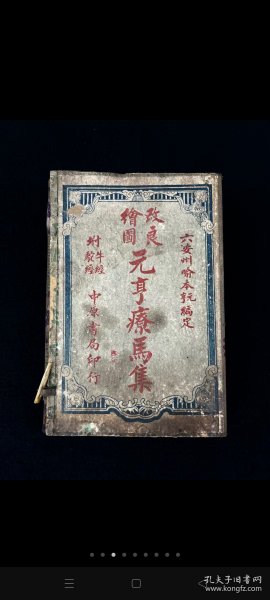 六安州喻本亨編定
改良
繪圖
元亨療馬集
附
牛經
駝經
中原書局印行
孔夫子旧书网
www.kongfz.com